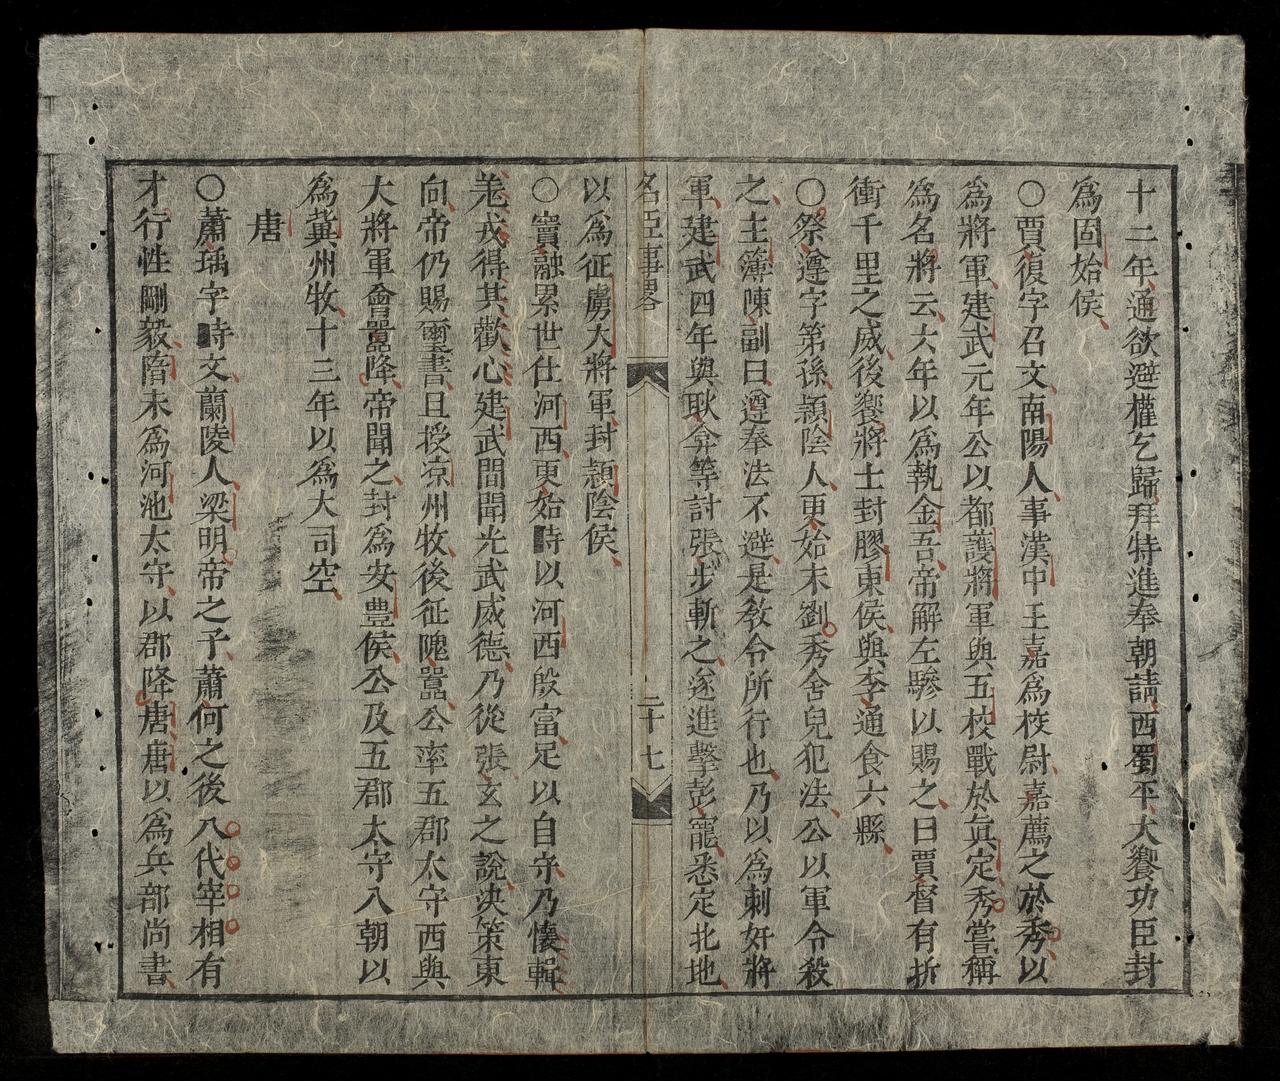 十二年通欲避權乞歸拜特進奉朝請西蜀平大饗功臣封
為固始侯
○賈復字召文南陽人事漢中王嘉為校尉嘉薦之於秀以
為將軍建武元年公以都護將軍與五校戰於眞定秀嘗稱
為名將云六年以為執金吾帝解左驂以賜之曰賈督有折
衝千里之威後饗將士封膠東侯與李通食六縣
○祭遵字第孫潁陰人更始末劉秀舍兒犯法公以軍令殺
之主簿陳副曰遵奉法不避是教令所行也乃以為刺奸將
軍建武四年與耿弇等討張步斬之遂進擊彭寵悉定北地
名臣事畧
二十七
以為征虜大將軍封潁陰侯
○竇融累世仕河西更始時以河西殷富足以自守乃懷輯
羌戎得其歡心建武間聞光武威德乃從張玄之說决策東
向帝仍賜璽書且授凉州牧後征隗囂公率五郡太守西與
大將軍會囂降帝聞之封為安豊侯公及五郡太守入朝以
為冀州牧十三年以為大司空
唐
○蕭瑀字時文蘭陵人梁明帝之子蕭何之後八代宰相有
才行性剛毅隋末為河池太守以郡降唐唐以為兵部尚書